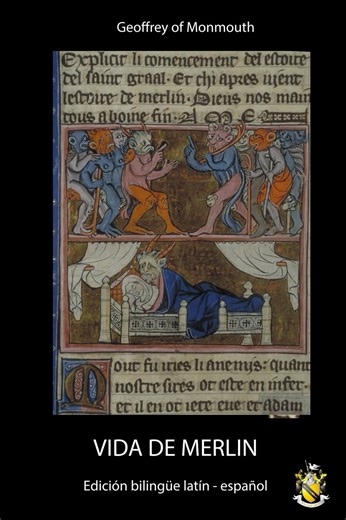 Geoffrey of Monmouth
Explicit li comencement del estoire
del saint graal. Et chi apres vient
lestoire de merlin. Diens nos maint
tous a boine fin. A M E
Mout fu iries li anemis: quant
nostre sires ot este en infer.
et il en ot iete eue et adam
VIDA DE MERLIN
Edición bilingüe latín - español